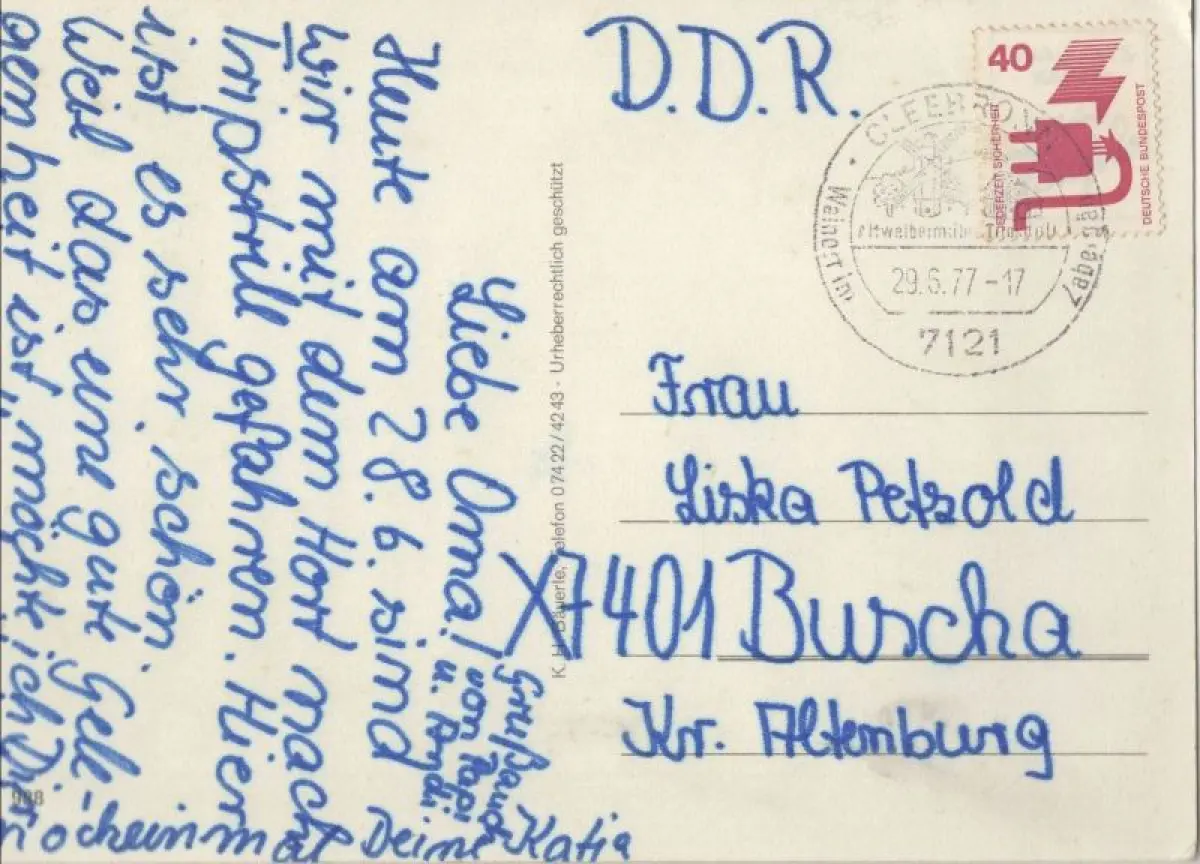 Liebe Oma!
Heute am 28.6. sind
wir mit dem Hort nach
Tripstrill gefahren. Hier
ist es sehr schön.
Weil das eine gute Gele-
genheit ist, möchte ich Dir
nocheinmal Deine Katja
Gruß auch
von Papi
u. Andi
K. H. Bäuerle, Telefon 07422/4243 - Urheberrechtlich geschützt
988
D.D.R.
40
JEDERZEIT SICHERHEIT
DEUTSCHE BUNDESPOST
CLEEBRONN
Altweibermühle Tripsdrill
29.6.77-17
7121
Frau
Liska Petzold
X7401 Buscha
Kr. Altenburg